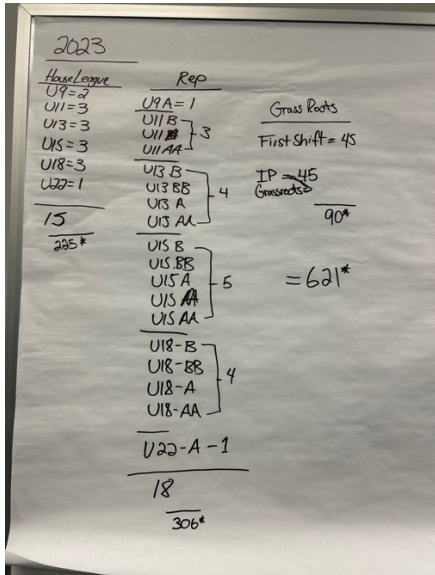 2023
House League
U9=2
U11=3
U13=3
U15=3
U18=3
U22=1
15
225*
Rep
U9A=1
U11B
U11
U11AA
3
U13 B
U13 BB
U13 A
U13 AA
4
U15 B
U15 BB
U15 A
U15
U15 AA
5
U18-B
U18-BB
U18-A
U18-AA
4
U22-A-1
18
306*
Grass Roots
First Shift = 45
IP = 45
Grassroots
90*
=621*